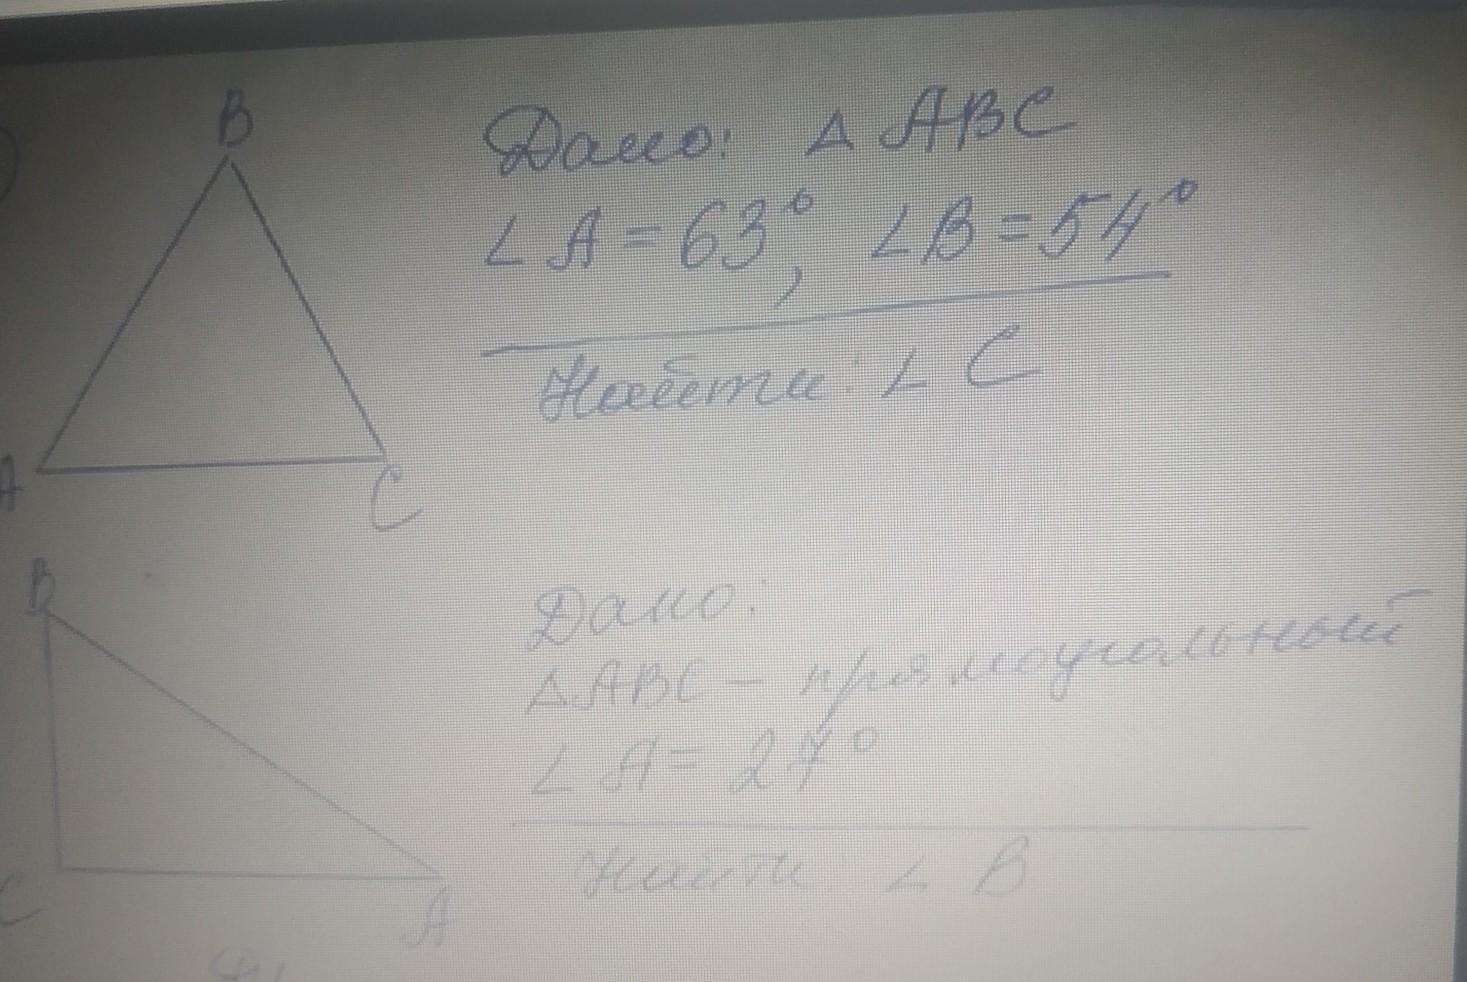 B
Дано: Δ ABC
∠ A = 63°, ∠B = 54°
Найти: ∠ C
A
C
B
Дано:
ΔABC – прямоугольный
∠ A = 27°
Найти: ∠ B
C
A